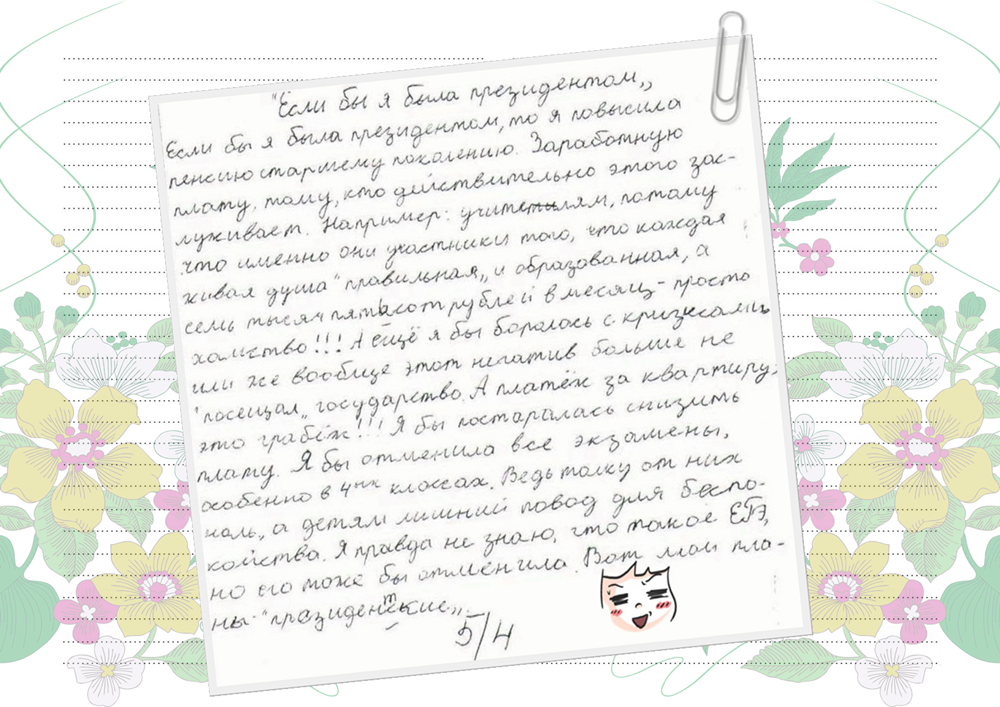 "Если бы я была президентом„
Если бы я была президентом, то я повысила
пенсию старшему поколению. Заработную
плату, тому, кто действительно этого зас-
луживает. Например: учителям, потому
что именно они участники того, что каждая
живая душа "правильная„ и образованная, а
семь тысяч пятьсот рублей в месяц - просто
хамство!!! А ещё я бы боролась с кризисами
или же вообще этот негатив больше не
"посещал„ государство. А платёж за квартиру,
это грабёж!!! Я бы постаралась снизить
плату. Я бы отменила все экзамены,
особенно в 4ых классах. Ведь толку от них
ноль, а детям лишний повод для беспо-
койства. Я правда не знаю, что такое ЕГЭ,
но его тоже бы отменила. Вот мои пла-
ны "президентские„.
5/4